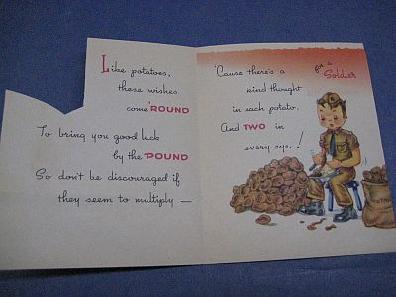 Like potatoes,
these wishes
come 'ROUND
To bring you good luck
by the POUND
So don't be discouraged if
they seem to multiply —
for a
Soldier
'Cause there's a
kind thought
in each potato,
And TWO in
every eye!